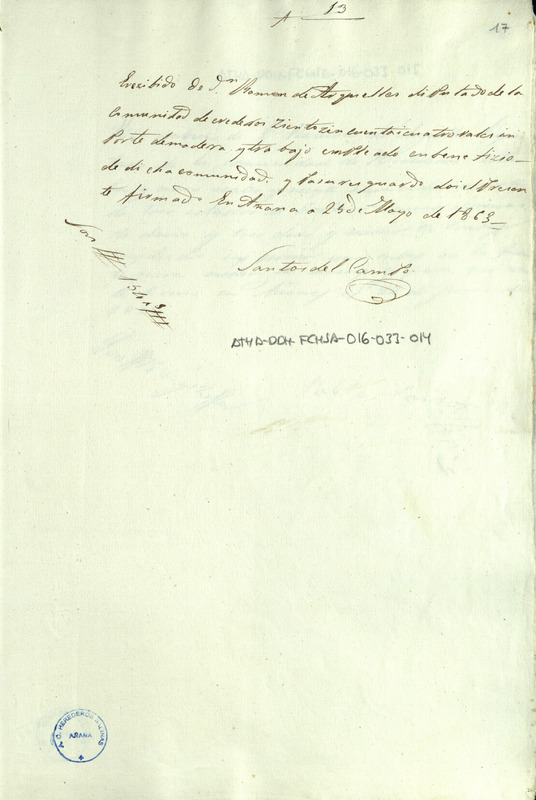 13
17
Erecibido de Dn Ramon de Arguelles diPutado de la
Comunidad de eredores Zientocin cuentaicuatro rales in
Porte demadera ytra bajo emPleado enbene fizio
de di cha comunidad y Pararesguardo doi el Presen
te firmado En Añana a 25 de Mayo de 1863
Son 154 rs
Santos del CamPo
ATHA-DDH-FCHSA-016-033-014
AÑANA